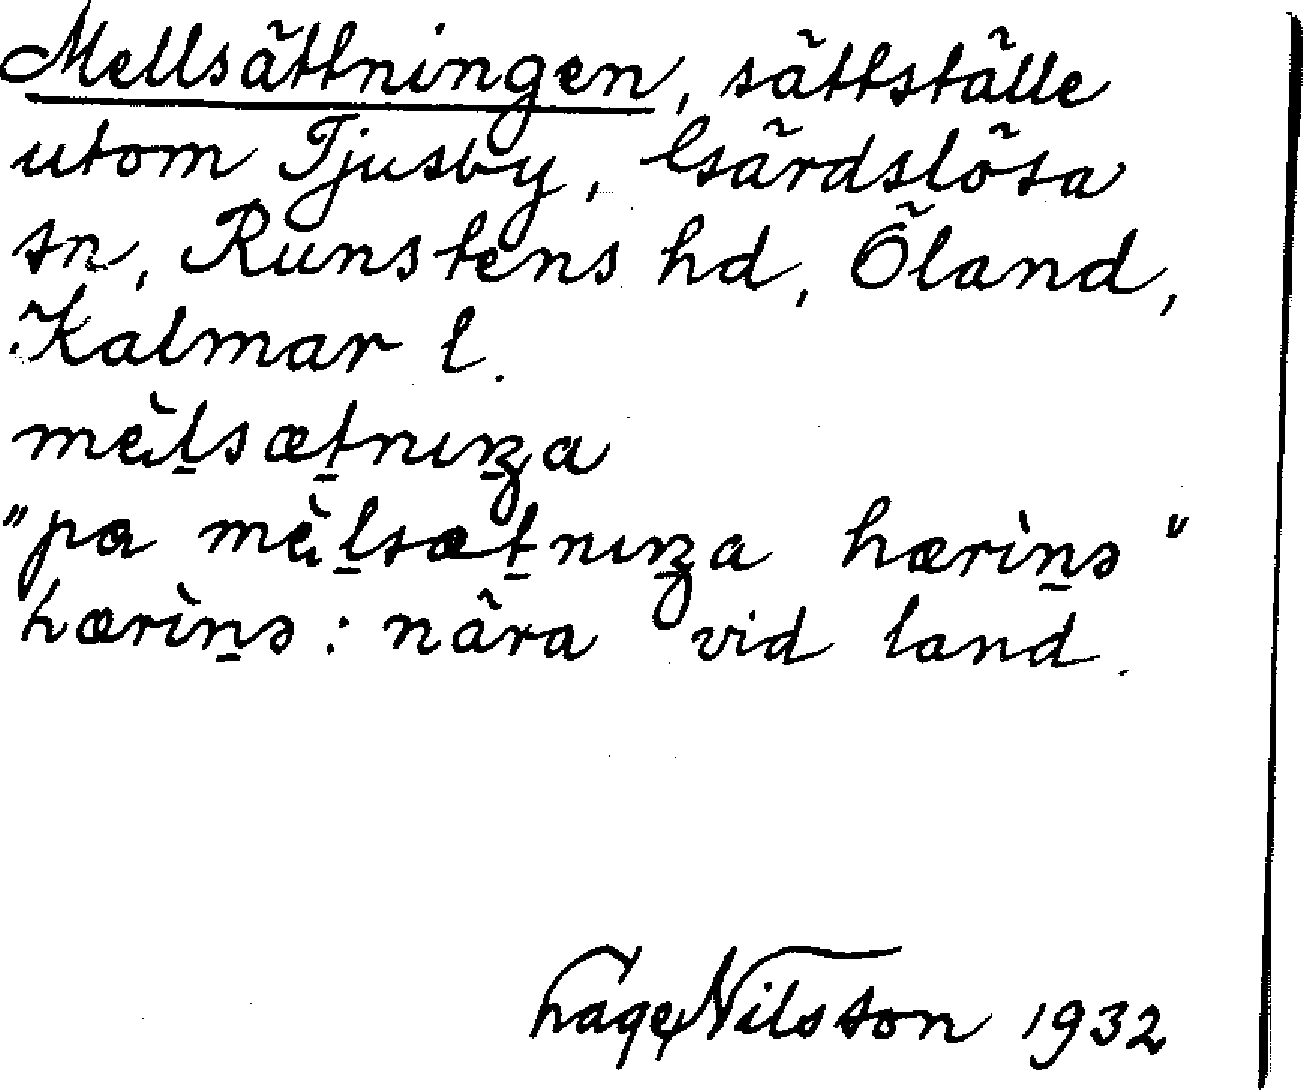 Mellsättningen, sättställe
utom Tjusby, Gärdslösa
sn, Runstens hd, Öland,
Kalmar l.
mèl̠sæt̠nɩŋa
"pa mèl̠sæt̠nɩŋa hærin̠ə"
hærin̠ə: nära vid land.
Hage Nilsson 1932